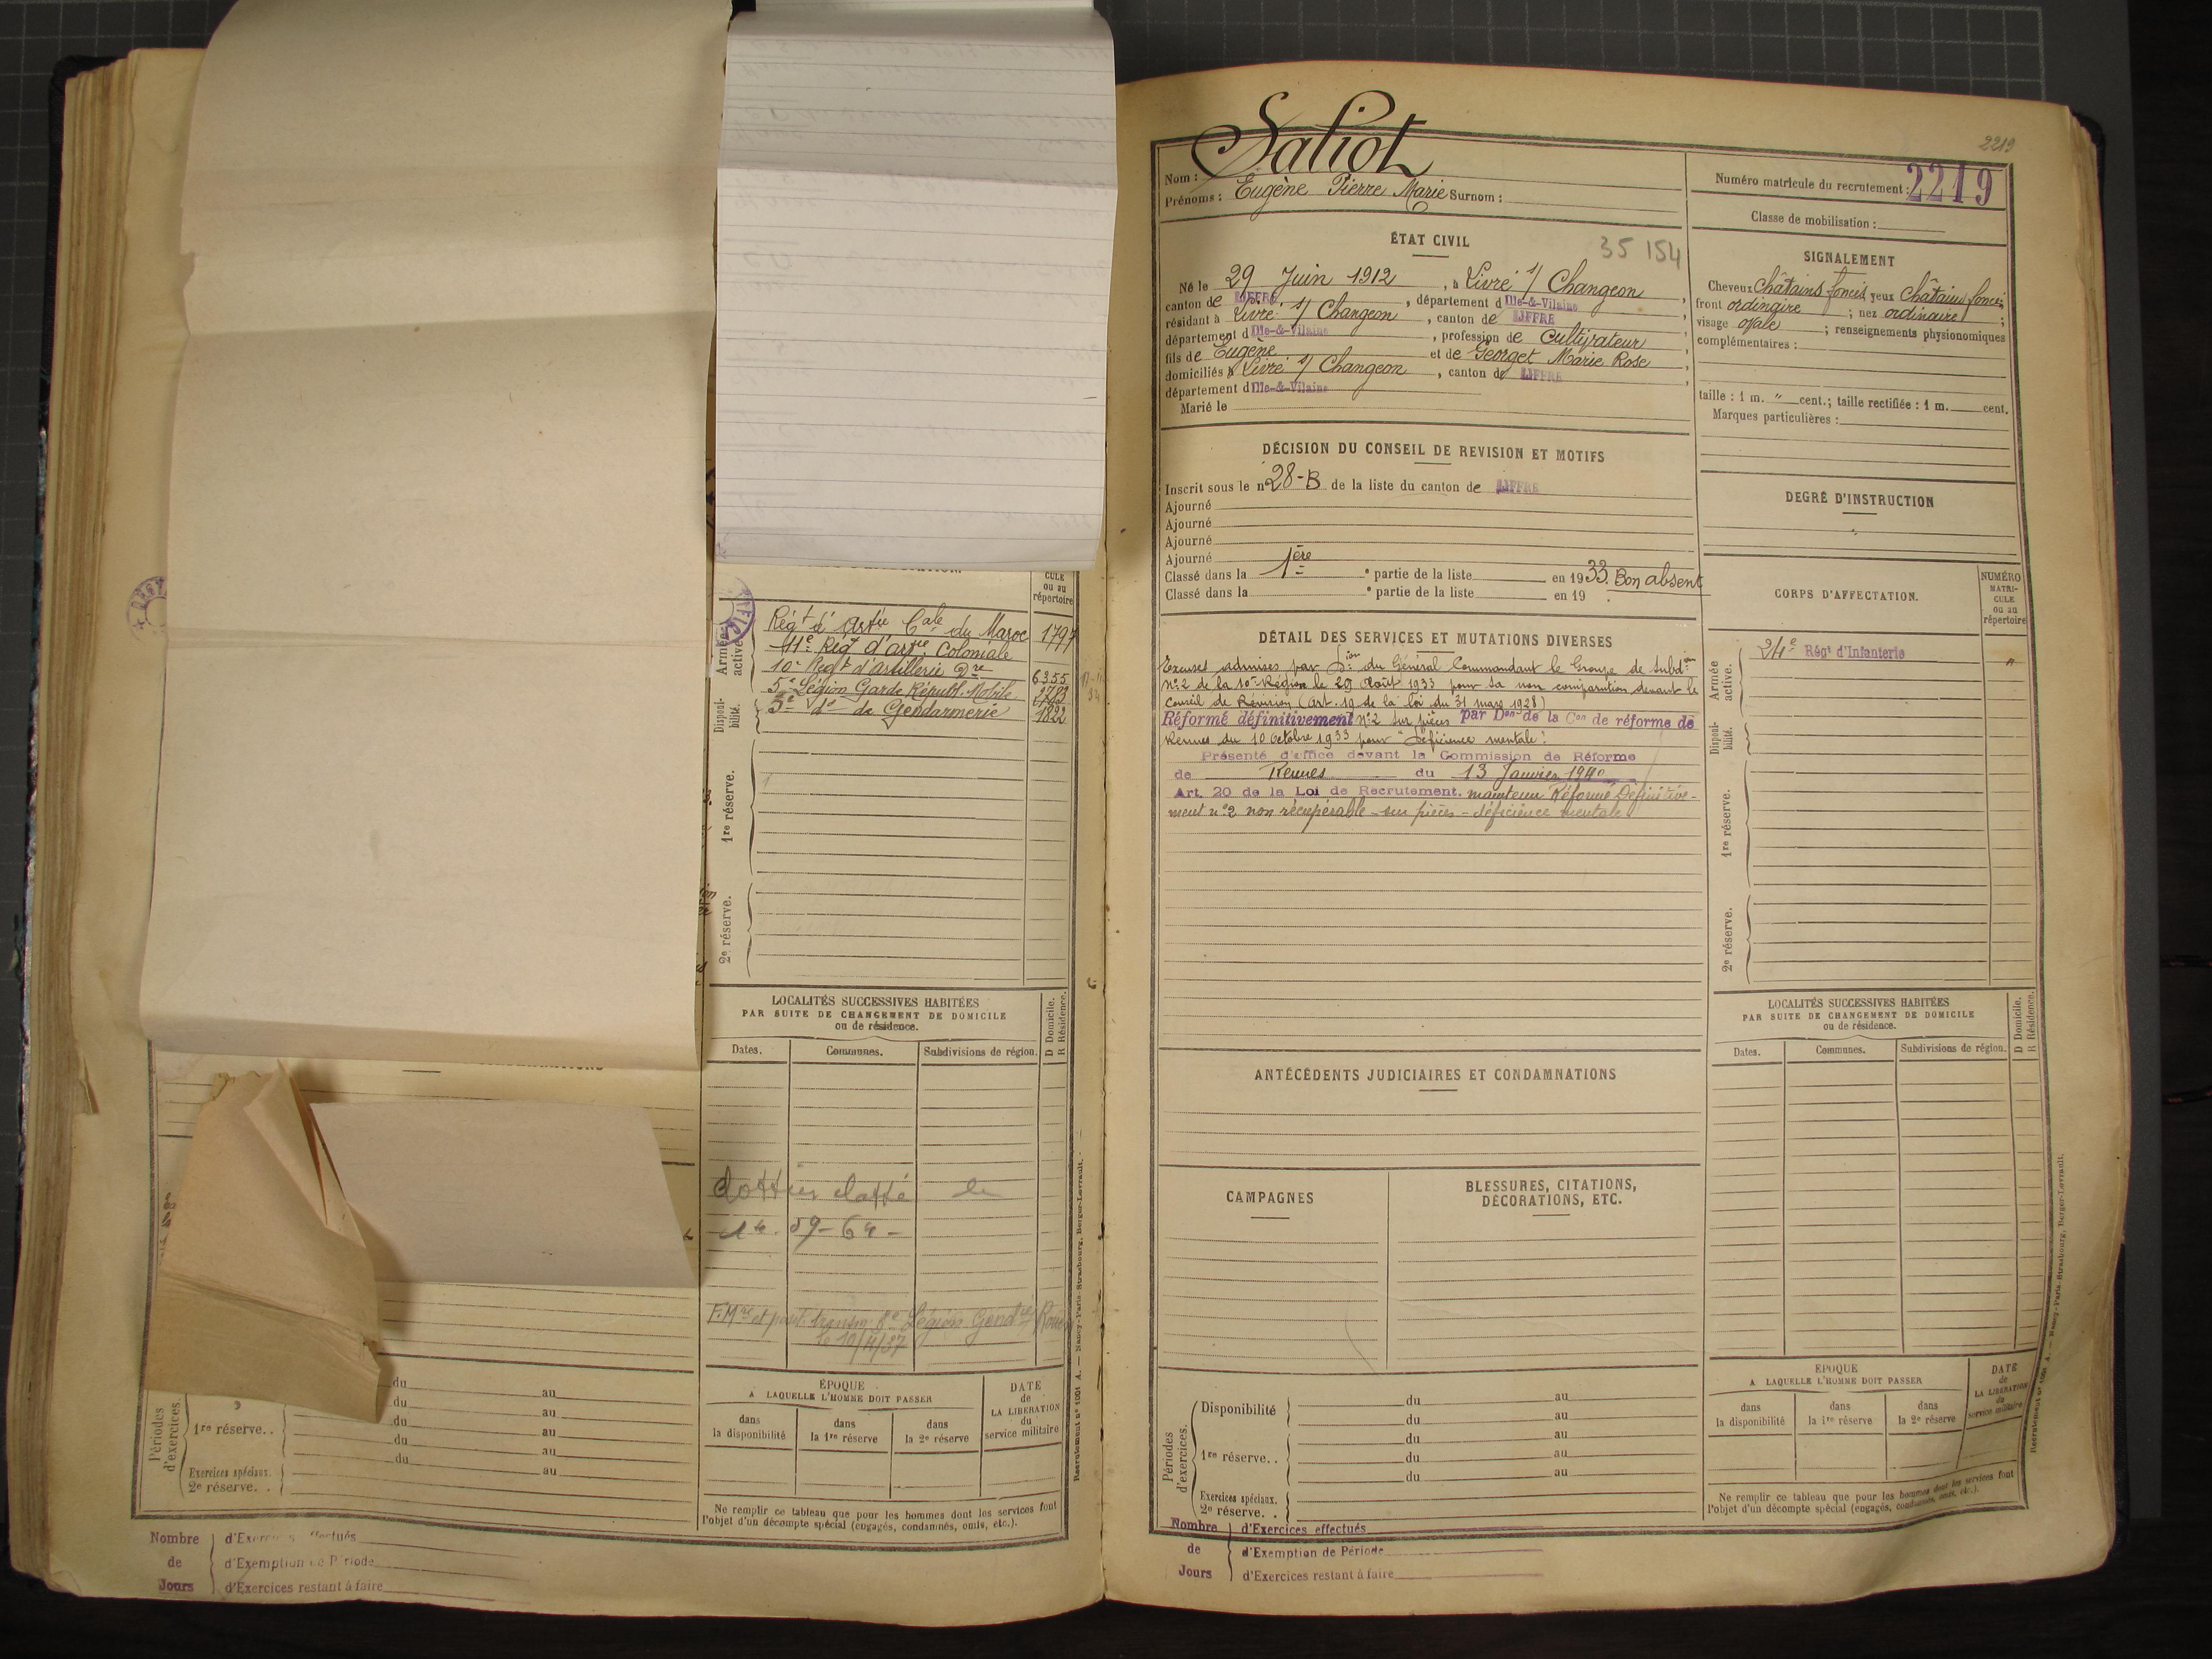 CULE
ou au
répertoire
Armée active.
Régt d'Artie Cale du Maroc 1797
11e Régt d'artie Coloniale
10e Régt d'artillerie Dre 6355
5e Légion Garde Républ. Mobile 2783
Disponibilité.
3e do de Gendarmerie 1822
1re réserve.
2e réserve.
LOCALITÉS SUCCESSIVES HABITÉES
PAR SUITE DE CHANGEMENT DE DOMICILE
ou de résidence.
D Domicile.
R Résidence.
Dates. Communes. Subdivisions de région.
dossier classé le
59-64-
Légion Gendie
le 10/4/37
Périodes d'exercices.
du au
1re réserve.. du au
du au
du au
du au
Exercices spéciaux.
2e réserve. .
ÉPOQUE
A LAQUELLE L'HOMME DOIT PASSER
dans la disponibilité
dans la 1re réserve
dans la 2e réserve
DATE
de
LA LIBERATION
du
service militaire
Ne remplir ce tableau que pour les hommes dont les services font
l'objet d'un décompte spécial (engagés, condamnés, omis, etc.).
Recrutement no 1001 A. — Nancy-Paris-Strasbourg, Berger-Levrault.
Nombre d'Exercices effectués
de d'Exemption de Période
Jours d'Exercices restant à faire
2219
Nom : Saliot
Prénoms : Eugène Pierre Marie Surnom :
Numéro matricule du recrutement : 2219
Classe de mobilisation :
ÉTAT CIVIL
35 154
Né le 29 Juin 1912, à Livré s/ Changeon,
canton de LIFFRE, département d Ille-&-Vilaine,
résidant à Livré s/ Changeon, canton de LIFFRE,
département d Ille-&-Vilaine, profession de Cultivateur
fils de Eugène et de Georget Marie Rose,
domiciliés à Livré s/ Changeon, canton de LIFFRE,
département d Ille-&-Vilaine
Marié le
SIGNALEMENT
Cheveux Châtains foncés yeux Châtains foncés;
front ordinaire; nez ordinaire;
visage ovale; renseignements physionomiques
complémentaires :
taille : 1 m. " cent.; taille rectifiée : 1 m. cent.
Marques particulières :
DÉCISION DU CONSEIL DE REVISION ET MOTIFS
Inscrit sous le no 28-B de la liste du canton de LIFFRE
Ajourné
Ajourné
Ajourné
Ajourné
Classé dans la 1ère e partie de la liste en 1933. Bon absent
Classé dans la e partie de la liste en 19 .
DEGRÉ D'INSTRUCTION
"
CORPS D'AFFECTATION.
NUMÉRO
MATRI-
CULE
ou au
répertoire
DÉTAIL DES SERVICES ET MUTATIONS DIVERSES
Excuses admises par Don du Général Commandant le Groupe de Subdons
No 2 de la 10e Région le 29 Août 1933 pour sa non comparution devant le
Conseil de Révision (art. 19 de la loi du 31 mars 1928)
Réformé définitivement No 2 sur pièces par Don de la Con de réforme de
Rennes du 10 octobre 1933 pour "Déficience mentale".
Présenté d'office devant la Commission de Réforme
de Rennes du 13 Janvier 1940
Art. 20 de la Loi de Recrutement. maintenu Réformé Définitive-
ment no 2 non récupérable - sur pièces - déficience mentale
Armée active.
24e Régt d'Infanterie "
Disponibilité.
1re réserve.
2e réserve.
ANTÉCÉDENTS JUDICIAIRES ET CONDAMNATIONS
CAMPAGNES
BLESSURES, CITATIONS,
DÉCORATIONS, ETC.
LOCALITÉS SUCCESSIVES HABITÉES
PAR SUITE DE CHANGEMENT DE DOMICILE
ou de résidence.
D Domicile.
R Résidence.
Dates. Communes. Subdivisions de région.
Périodes d'exercices.
Disponibilité du au
du au
1re réserve.. du au
du au
du au
Exercices spéciaux.
2e réserve. .
ÉPOQUE
A LAQUELLE L'HOMME DOIT PASSER
dans la disponibilité
dans la 1re réserve
dans la 2e réserve
DATE
de
LA LIBERATION
du
service militaire
Ne remplir ce tableau que pour les hommes dont les services font
l'objet d'un décompte spécial (engagés, condamnés, omis, etc.).
Recrutement no 1001 A. — Nancy-Paris-Strasbourg, Berger-Levrault.
Nombre d'Exercices effectués
de d'Exemption de Période
Jours d'Exercices restant à faire